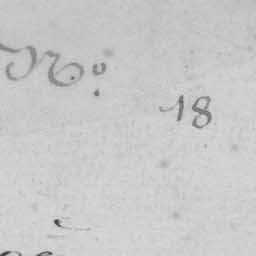 No: 18